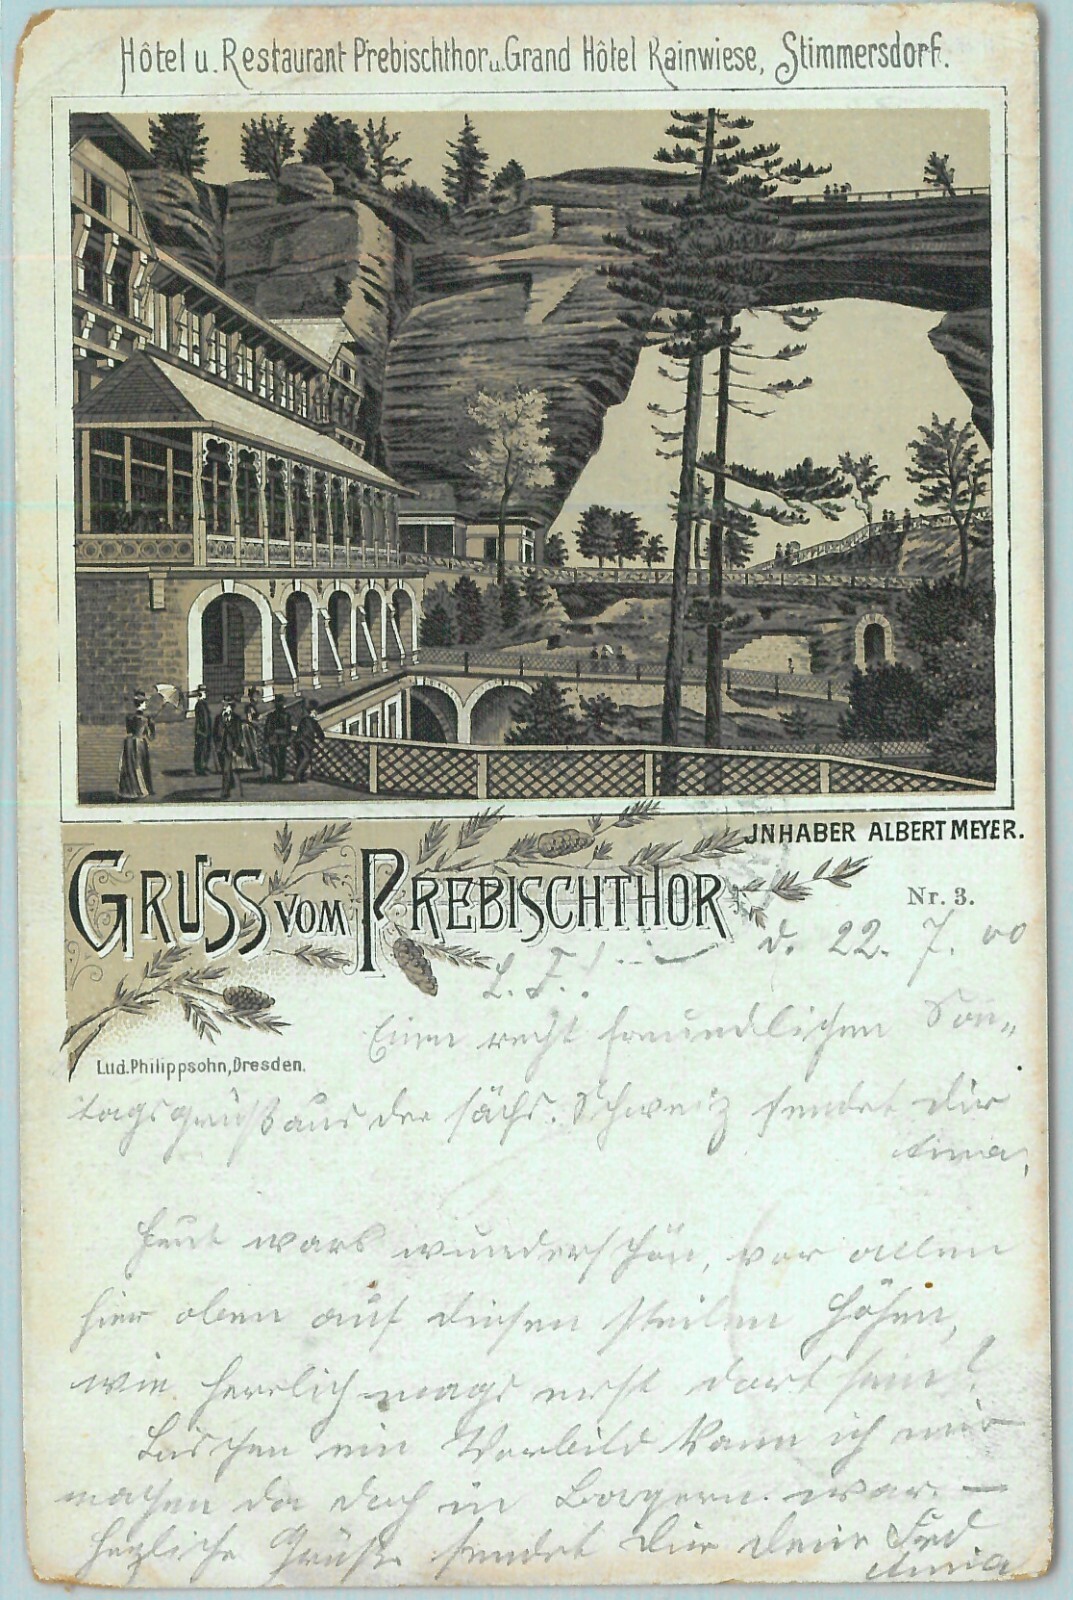 Hôtel u. Restaurant Prebischthor u. Grand Hôtel Rainwiese, Stimmersdorf.
JNHABER ALBERT MEYER.
GRUSS VOM PREBISCHTHOR
Nr. 3.
d. 22. 7. 00
L. F.!
Einen recht freundlichen Son-
Lud. Philippsohn, Dresden.
tagsgruß aus der sächs. Schweiz sendet dir
Anna.
Heut wars wunderschön, vor allen
hier oben auf diesen steilen Höhen,
wie herrlich mags erst dort sein!
ein Vorbild kann ich mir
machen da doch in Bayern war. —
Herzliche Grüße sendet dir deine
Anna